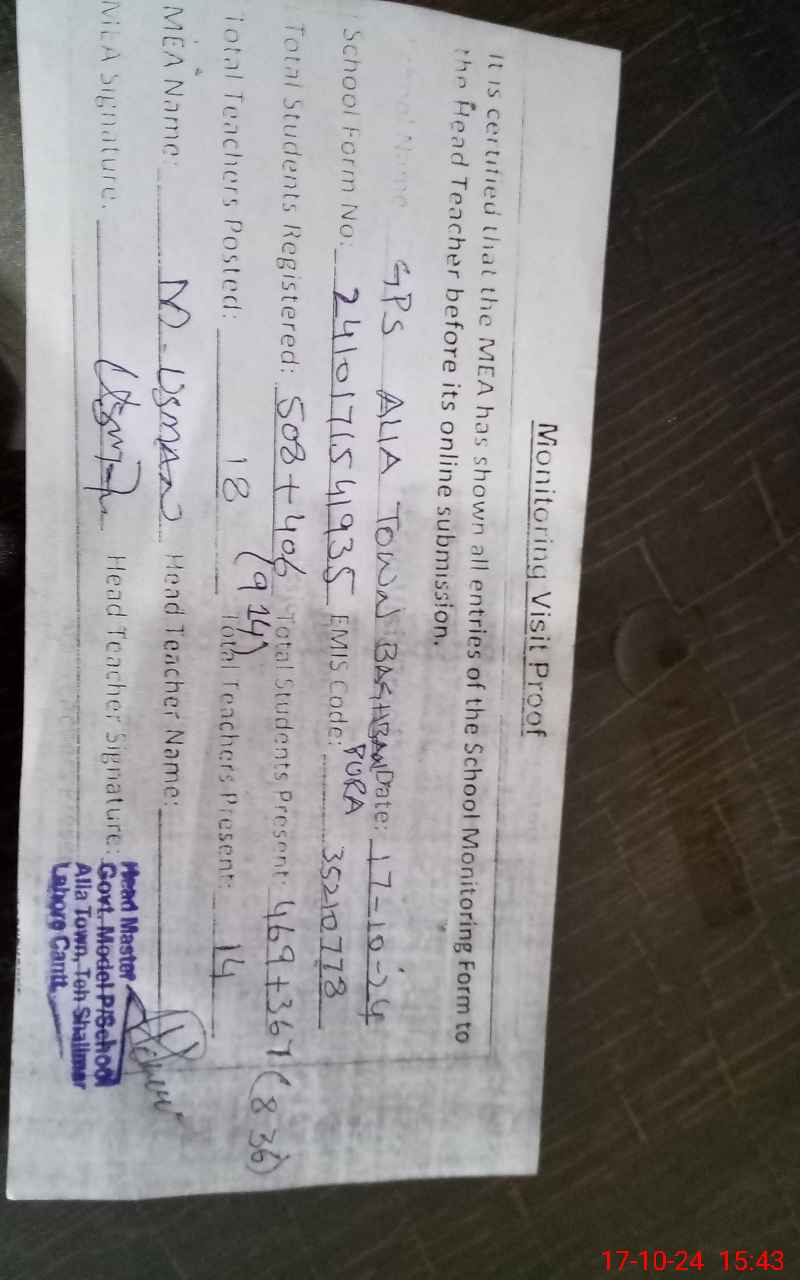 Monitoring Visit Proof
It is certified that the MEA has shown all entries of the School Monitoring Form to
the Head Teacher before its online submission.
School Name GPS ALIA TOWN BAGHBAN PURA Date: 17-10-24
School Form No: 2410171541935 EMIS Code: 35210778
Total Students Registered: 508+406 (914) Total Students Present: 469+367 (836)
Total Teachers Posted: 18 Total Teachers Present: 14
MEA Name: M-USMAN Head Teacher Name:
MEA Signature: Head Teacher Signature:
Head Master
Govt. Model P/School
Alia Town, Teh Shalimar
Lahore Cantt.
17-10-24 15:43